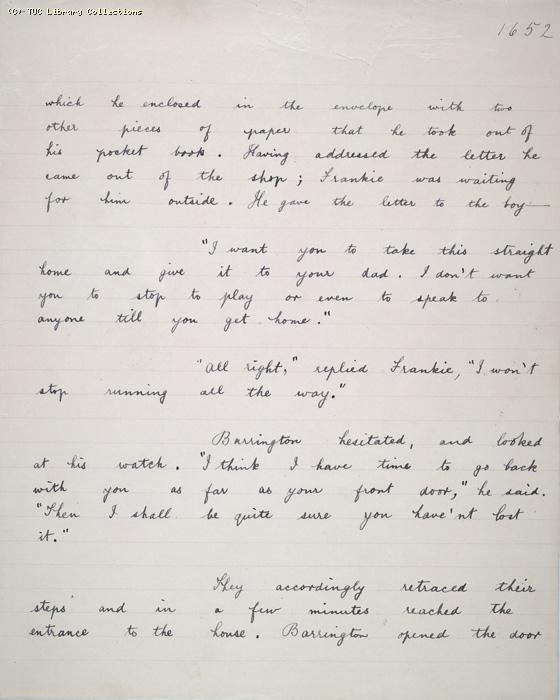 (C) TUC Library Collections
1652
which he enclosed in the envelope with two
other pieces of paper that he took out of
his pocket book. Having addressed the letter he
came out of the shop; Frankie was waiting
for him outside. He gave the letter to the boy—
"I want you to take this straight
home and give it to your dad. I don't want
you to stop to play or even to speak to
anyone till you get home."
"All right," replied Frankie, "I won't
stop running all the way."
Barrington hesitated, and looked
at his watch. "I think I have time to go back
with you as far as your front door," he said.
"Then I shall be quite sure you have'nt lost
it."
They accordingly retraced their
steps and in a few minutes reached the
entrance to the house. Barrington opened the door